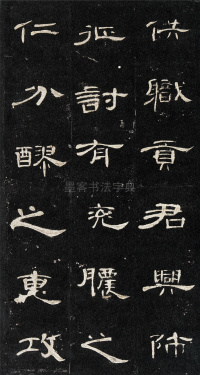 供職貢君興師
征討有兗膿之
仁分醪之惠攻
墨客书法字典